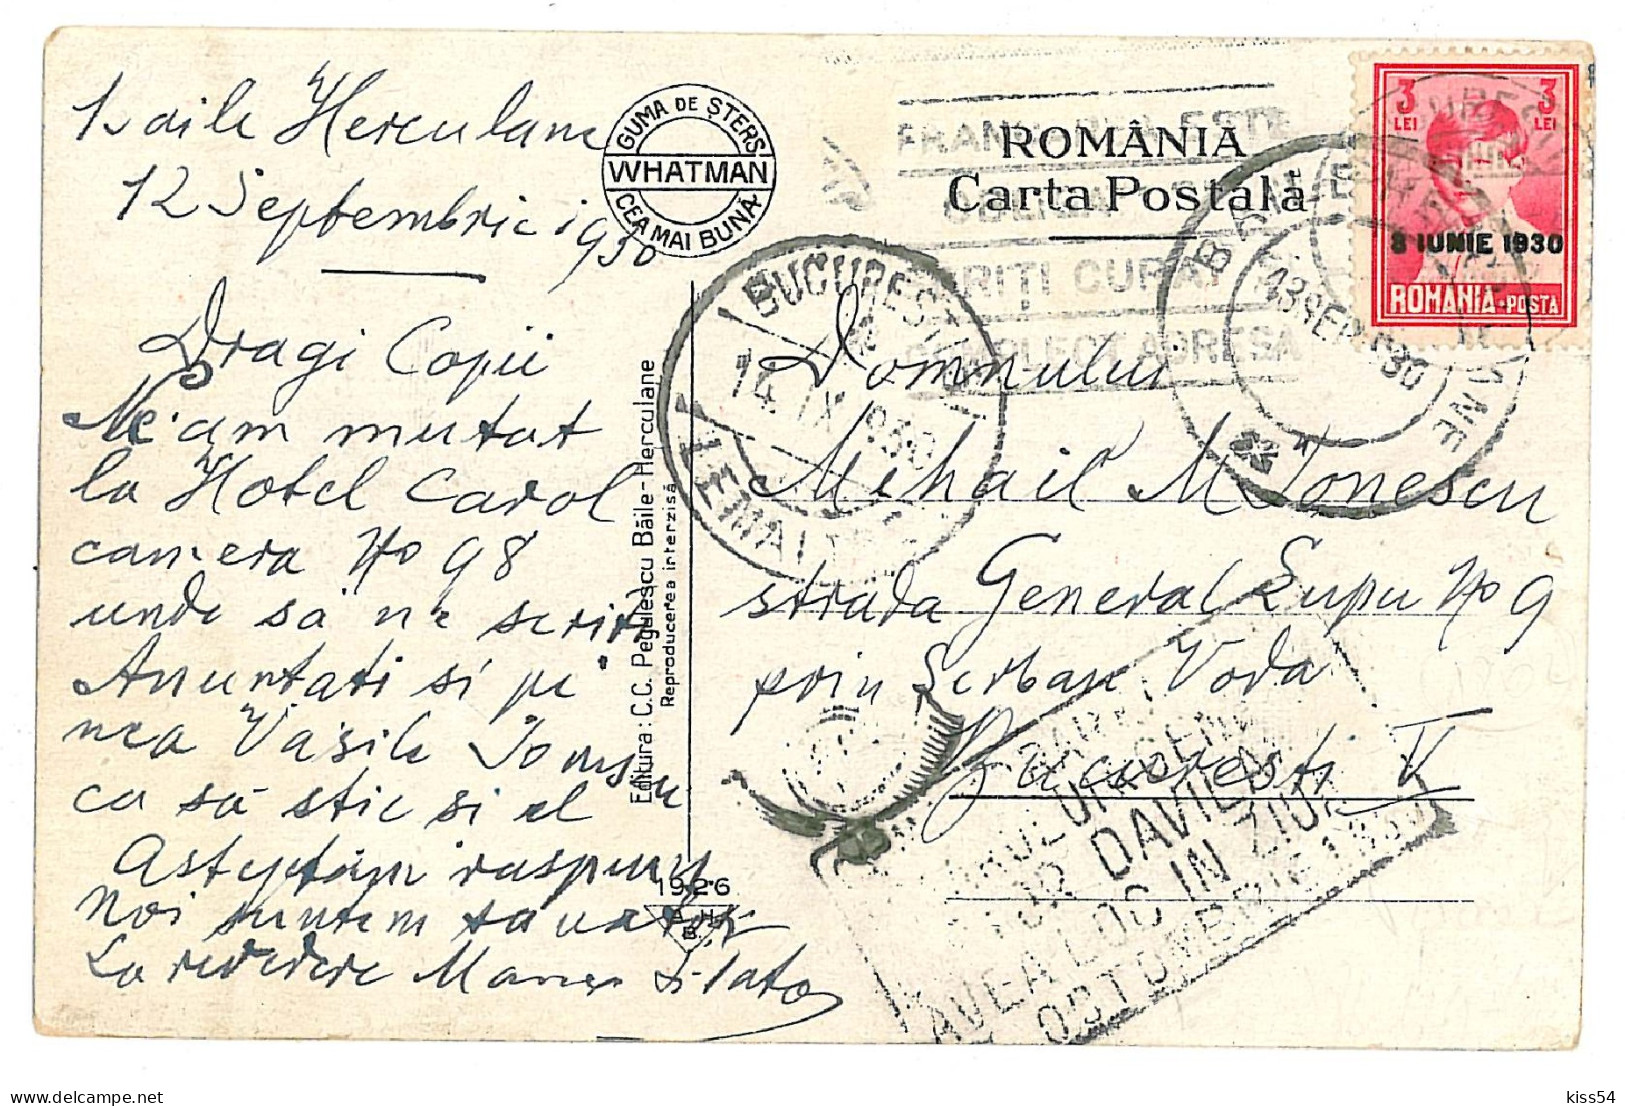 Baile Herculane
12 Septembrie 1930
Dragi Copii
Ne am mutat
la Hotel Carol
camera No 98
unde să ne scriti
Anuntati si pe
nea Vasile Ionescu
ca să stie si el
Asteptăm raspuns
Noi suntem sanatosi
La revedere Mama si Tata
GUMA DE ȘTERS
WHATMAN
CEA MAI BUNĂ
Editura: C.C. Pegulescu Băile-Herculane
Reproducerea interzisă
1926
A H
B
ROMÂNIA
Carta Postală
3 LEI
3 LEI
8 IUNIE 1930
ROMANIA-POSTA
13 SEP. 930
BUCUREȘTI
14 IX 930
Domnului
Mihail M Ionescu
strada General Lupu No 9
prin Serban Voda
Bucuresti V
DAVILA
AVEA LOC IN ZIUA
OCTOMBRIE 1930
kiss54